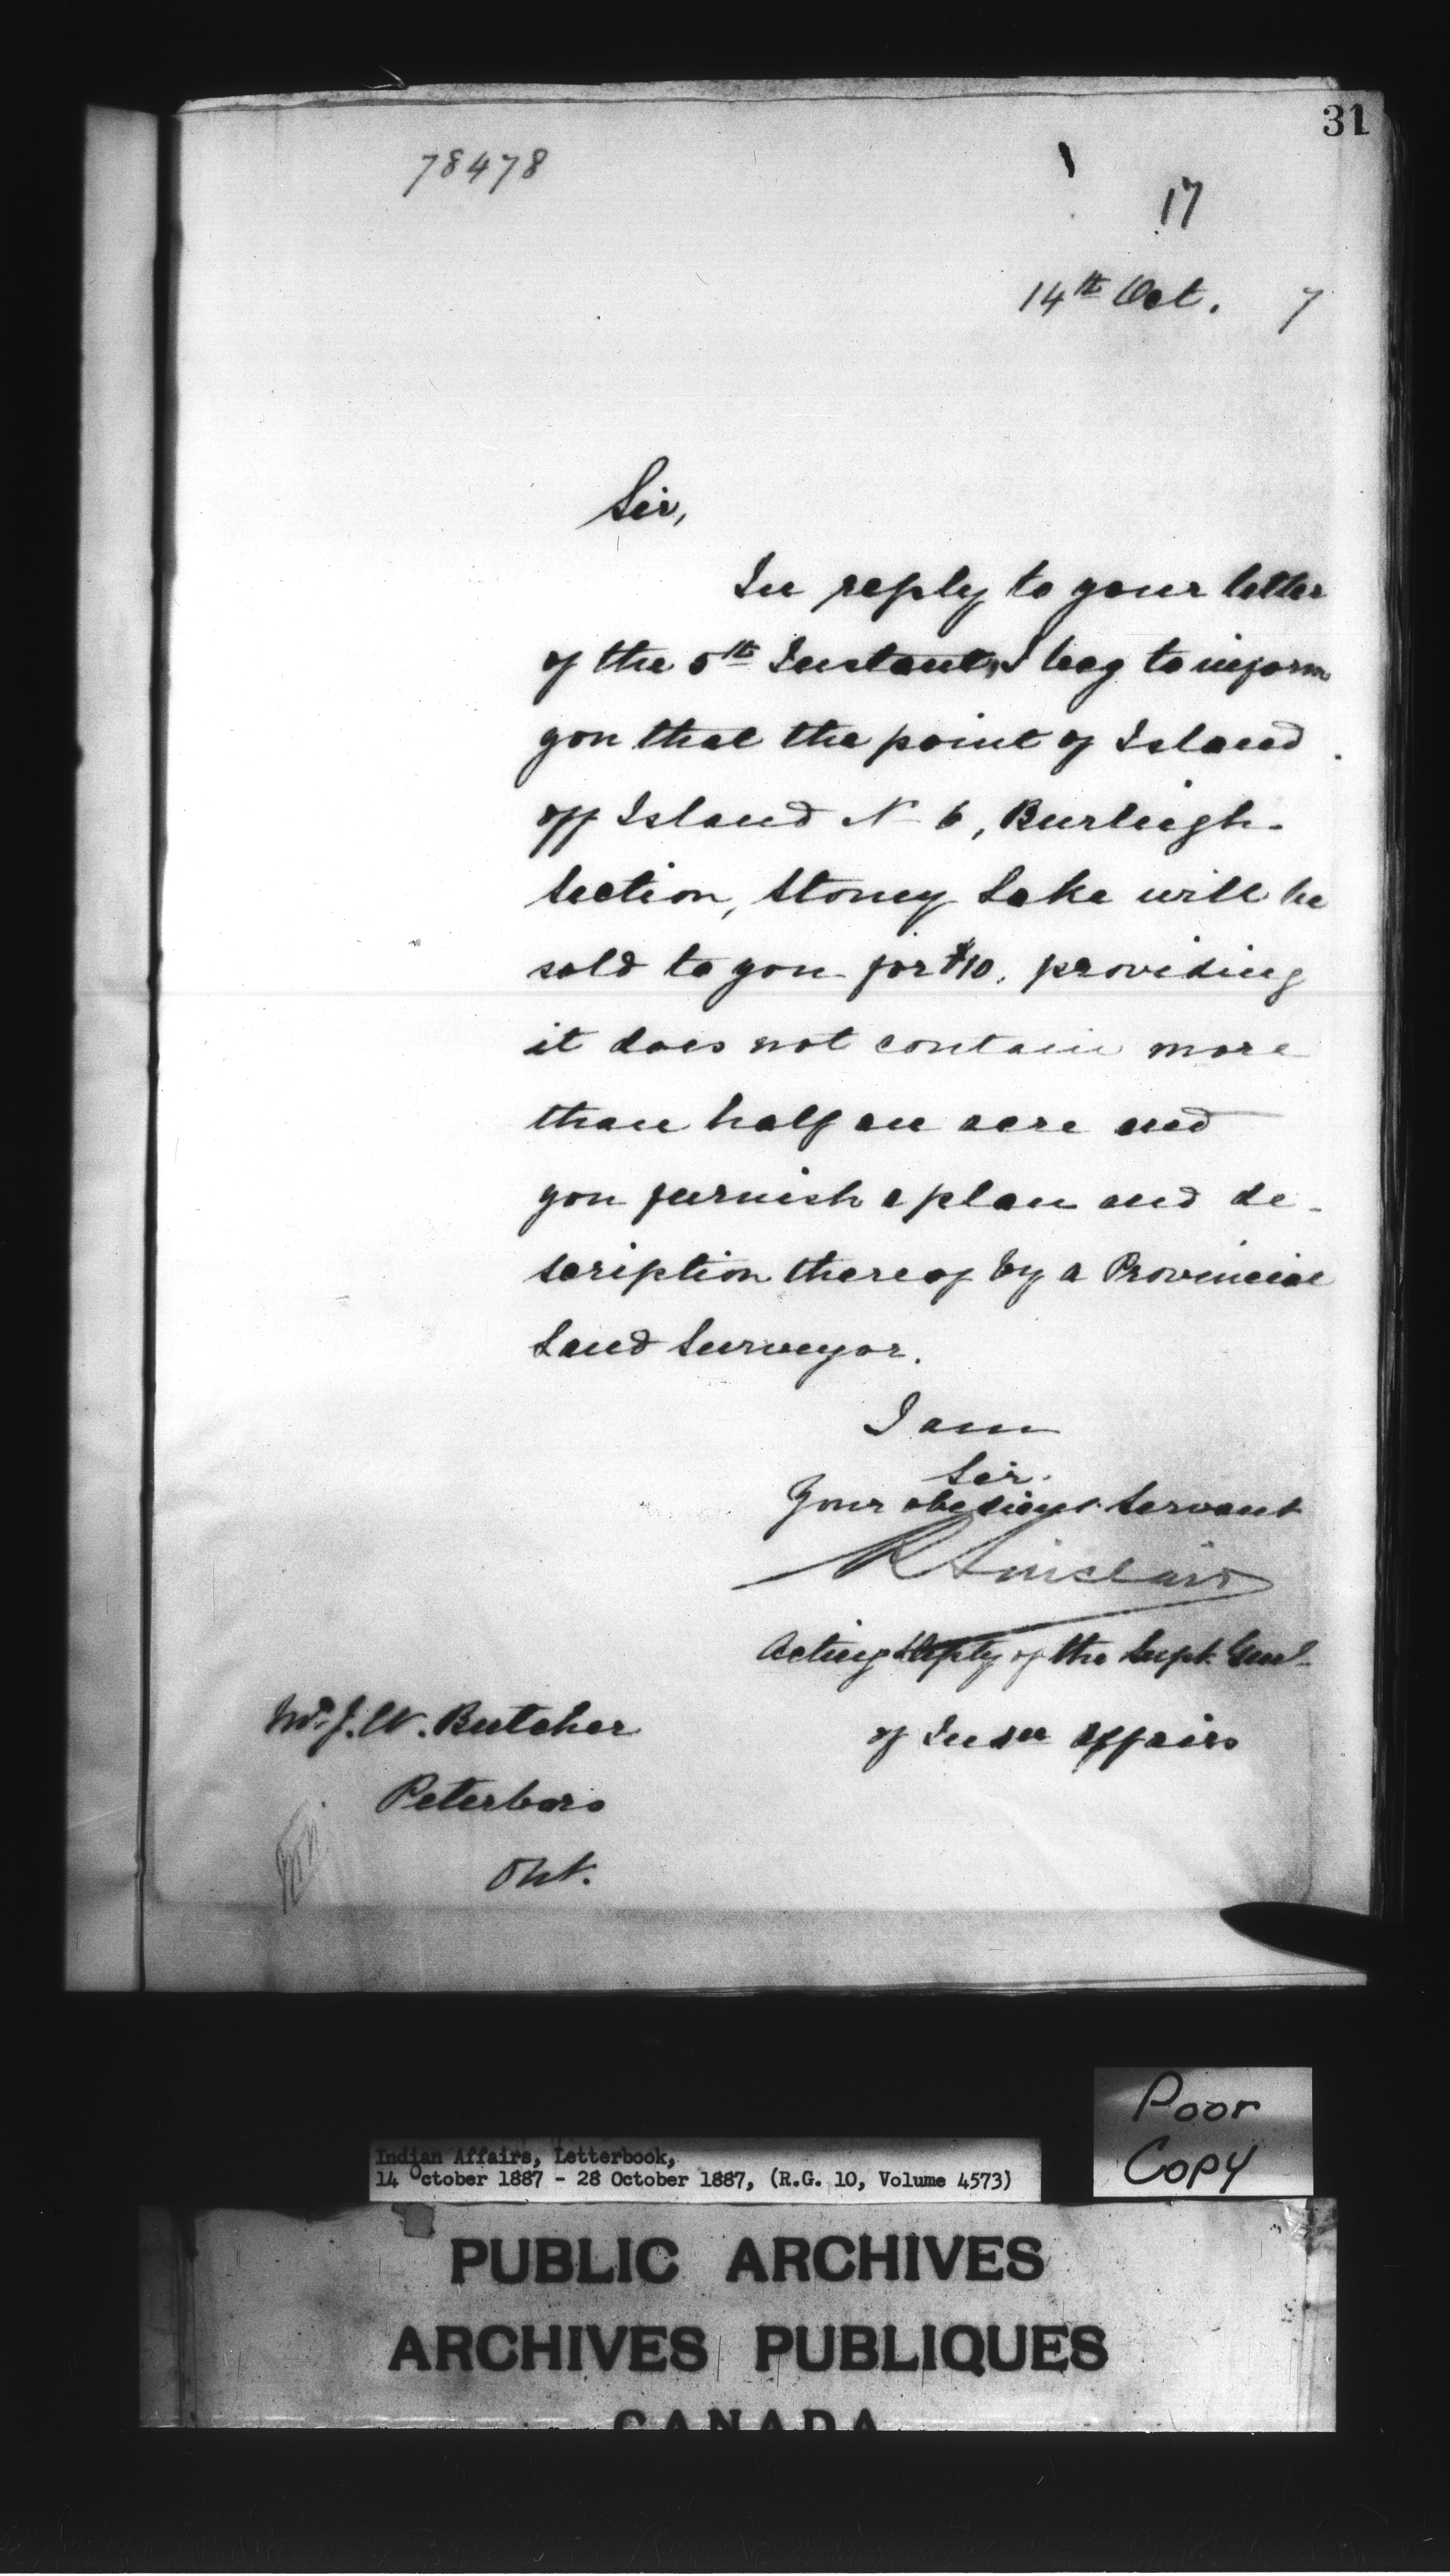 31
78478
17
14th Oct. 7
Sir,
In reply to your letter
of the 5th Instant, I beg to inform
you that the point of Island
off Island No 6, Burleigh
Section, Stoney Lake will be
sold to you for $10, providing
it does not contain more
than half an acre and
you furnish a plan and de-
scription thereof by a Provincial
Land Surveyor.
I am
Sir.
Your obedient Servant
R Sinclair
Acting Dpty of the Supt. Genl
of Indn Affairs
Mr. J. W. Butcher
Peterboro
Ont.
Poor
Copy
Indian Affairs, Letterbook,
14 October 1887 - 28 October 1887, (R.G. 10, Volume 4573)
PUBLIC ARCHIVES
ARCHIVES PUBLIQUES
CANADA